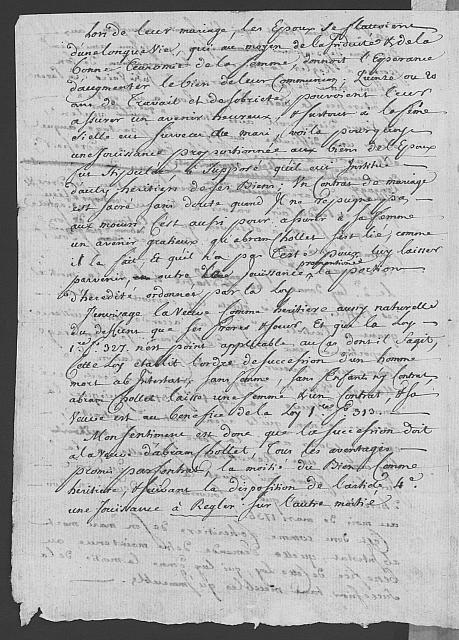 hors de leur mariage, les Epoux se flatoient
d'une longue vie, qui au moyen de la Jndustrie & de la
bonne Œconomie de la femme, donnoit l'Esperance
d'augmenter le bien de leur Communion; Quinze ou 20
ans de travail et de sobrieté pouvoient leur
assurer un avenir heureux, & surtout à la femme
si elle eut survecu au mari, voila pourquoi
une Jouissance proportionnée aux biens de l'Epoux
fut stipulée & supposé qu'il eut Jnstitué
d'autres héritiers de ses Biens; Un Contrat de mariage
est sacré sans doute quand Jl ne repugne pas
aux moeurs. C'est aussi pour assurer à sa femme
un avenir gratieux qu'abram Chollet s'est lié, comme
il la fait, et qu'il n'a pas testé pour luy laisser
parvenir, en outre une Jouissance proportionnée, la portion
d'héredité ordonnée par la Loy.
J'envisage la Veuve comme héritiere aussy naturelle
du deffunt que ses freres & soeurs et que la Loy
1re fo. 327. n'est point applicable au Cas dont il s'agit,
Cette Loy etablit l'ordre de succession d'un homme
mort ab Jntestat, sans femme, sans Enfant ny Contrat,
abram Chollet laisse une femme & un Contrat, & sa
Veuve est au benefice de la Loy 1re fo. 313.
Mon sentiment est donc que la succession doit
à la Veuve d'abram Chollet, tous les avantages
promis par Contrat, la moitié du Bien comme
héritiere & suivant la disposition de l'article 4e
une Jouissance à Regler sur l'autre moitié